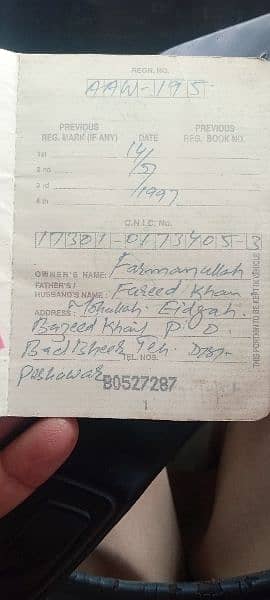 REGN. NO.
AAW-195
PREVIOUS PREVIOUS
REG. MARK (IF ANY) DATE REG. BOOK NO.
1st 14/
2 nd 5/
3 rd 1997
4 th
C.N.I.C. No.
17301-0173405-3
OWNER'S NAME: Farmanullah
FATHER'S/
HUSBAND'S NAME: Fareed Khan
ADDRESS: Mohallah Eidgah
Bazeed Khail P.O.
Bad Bheer Teh. Distt-
TEL. NOS.
Peshawar B0527287
1
THIS PORTION TO BE KEPT IN VEHICLE